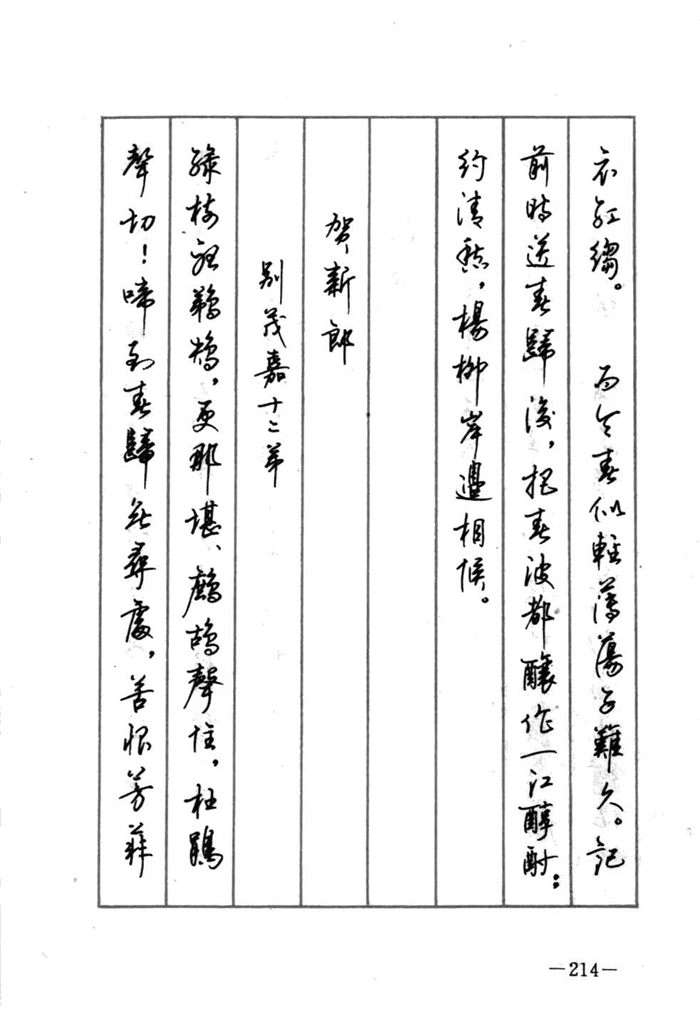 衣红繡。　而今春似輕薄蕩子難久。記
前時送春歸後，把春波都釀作一江醇酎：
約清愁，楊柳岸邊相候。
贺新郎
别茂嘉十二弟
绿树听鹈鴂，更那堪、鹧鸪聲住，杜鵑
聲切！啼到春歸无尋處，苦恨芳菲
—214—